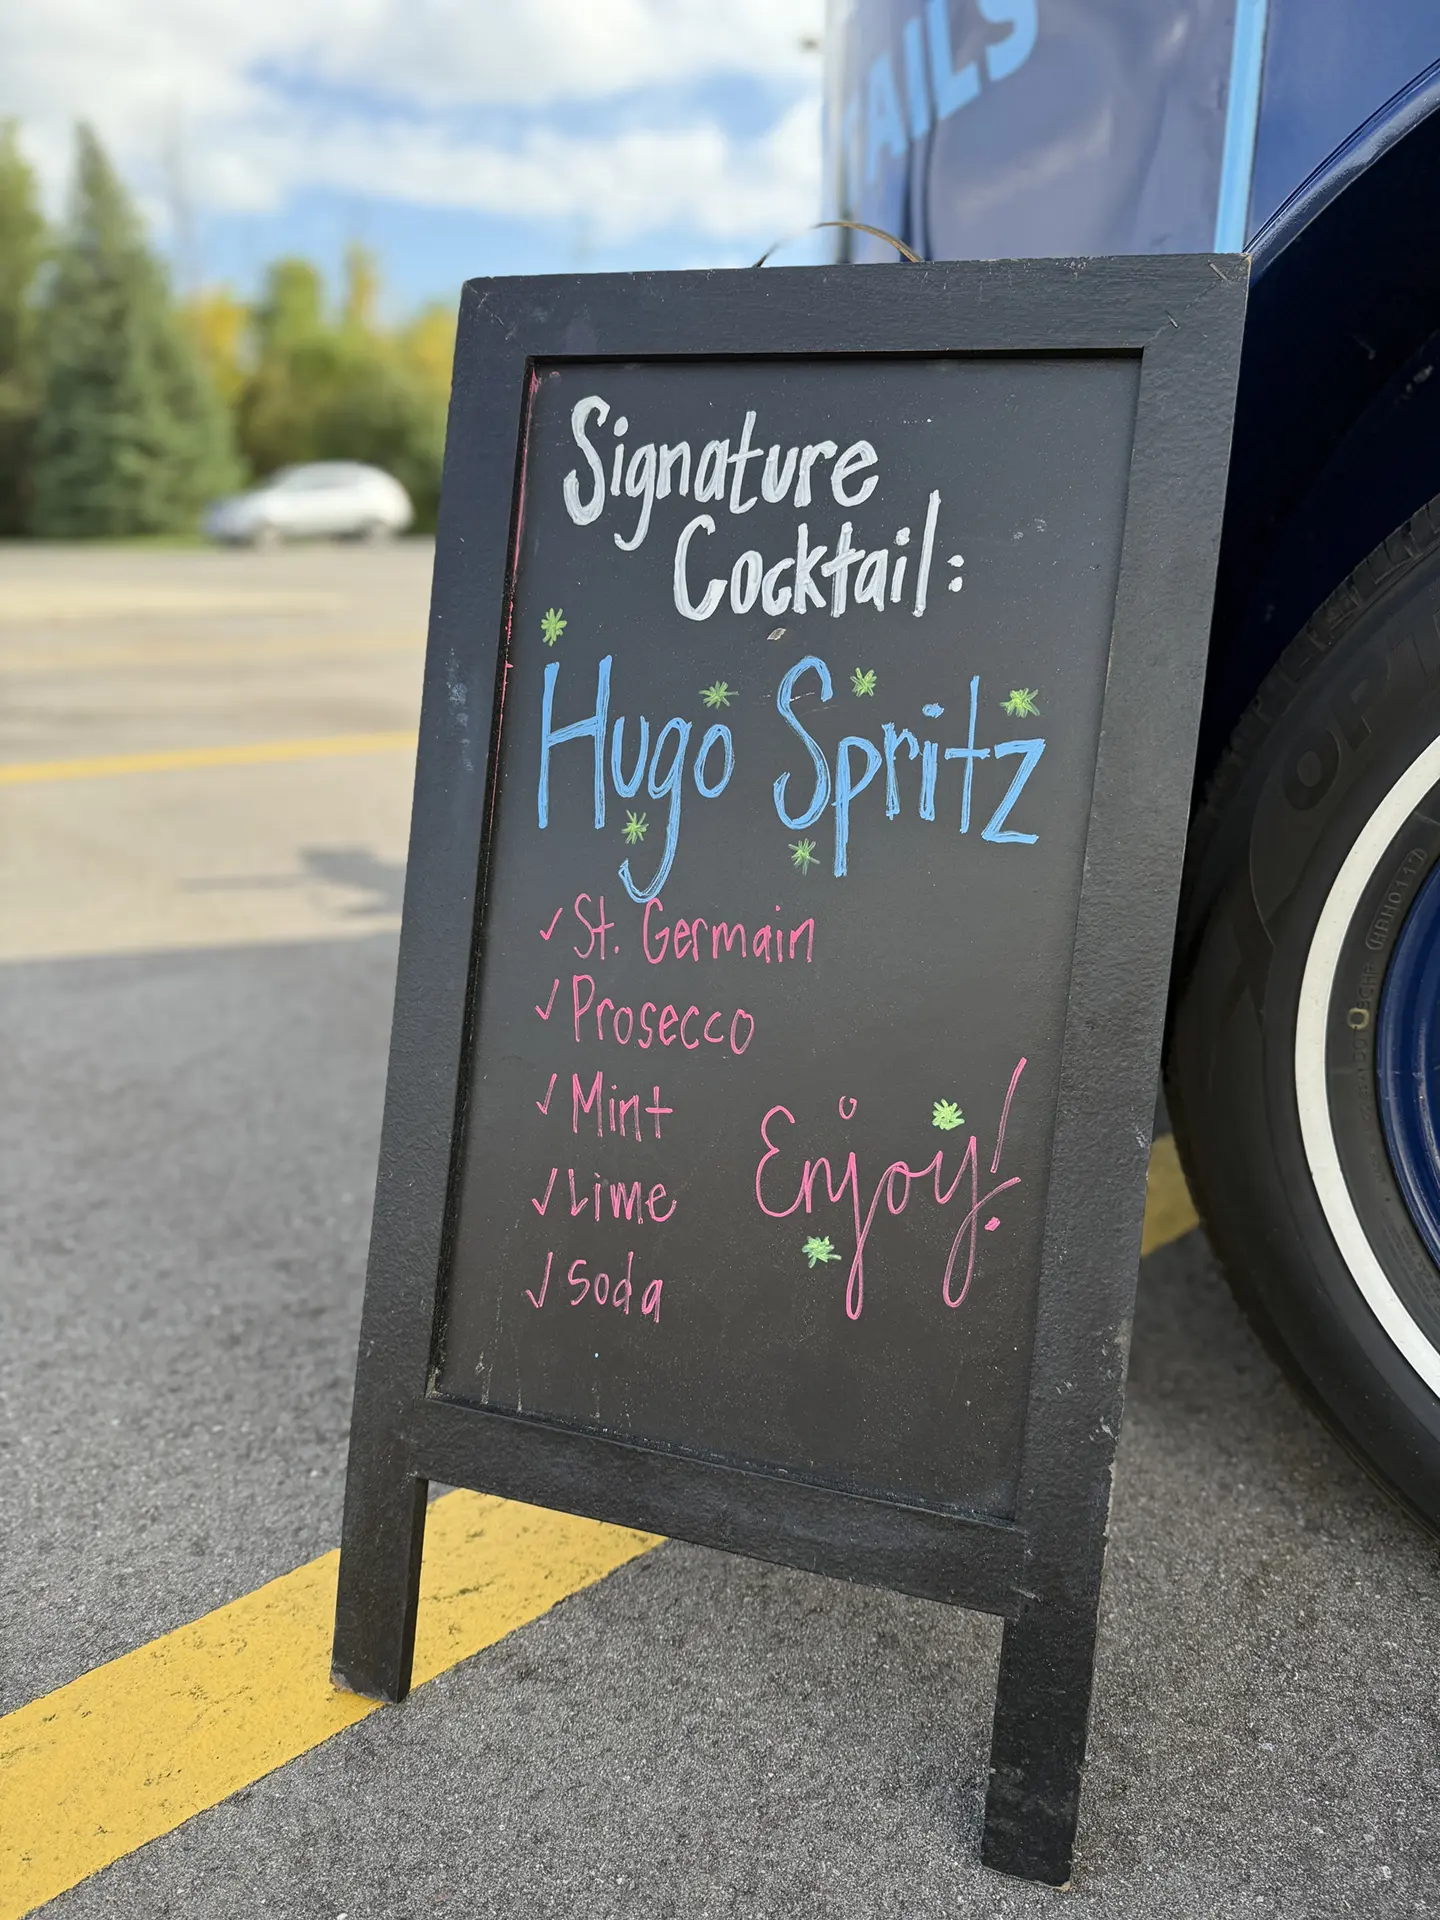 AILS
Signature
Cocktail:
Hugo Spritz
✓ St. Germain
✓ Prosecco
✓ Mint
✓ Lime
✓ Soda
Enjoy!